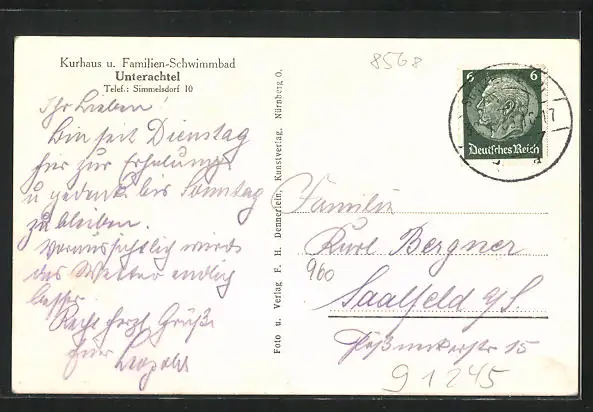 Kurhaus u. Familien-Schwimmbad
Unterachtel
Telef.: Simmelsdorf 10
Ihr Lieben!
Bin seit Dienstag
hier zur Erholung
u gedenke bis Sonntag
zu bleiben.
Voraussichtlich wird
das Wetter endlich
besser.
Recht herzl. Grüße
Euer Leopold
Foto u. Verlag F. H. Dennerlein, Kunstverlag, Nürnberg O.
8568
6 6
Deutsches Reich
Familie
Kurt Bergner
960
Saalfeld a/S
15
91245